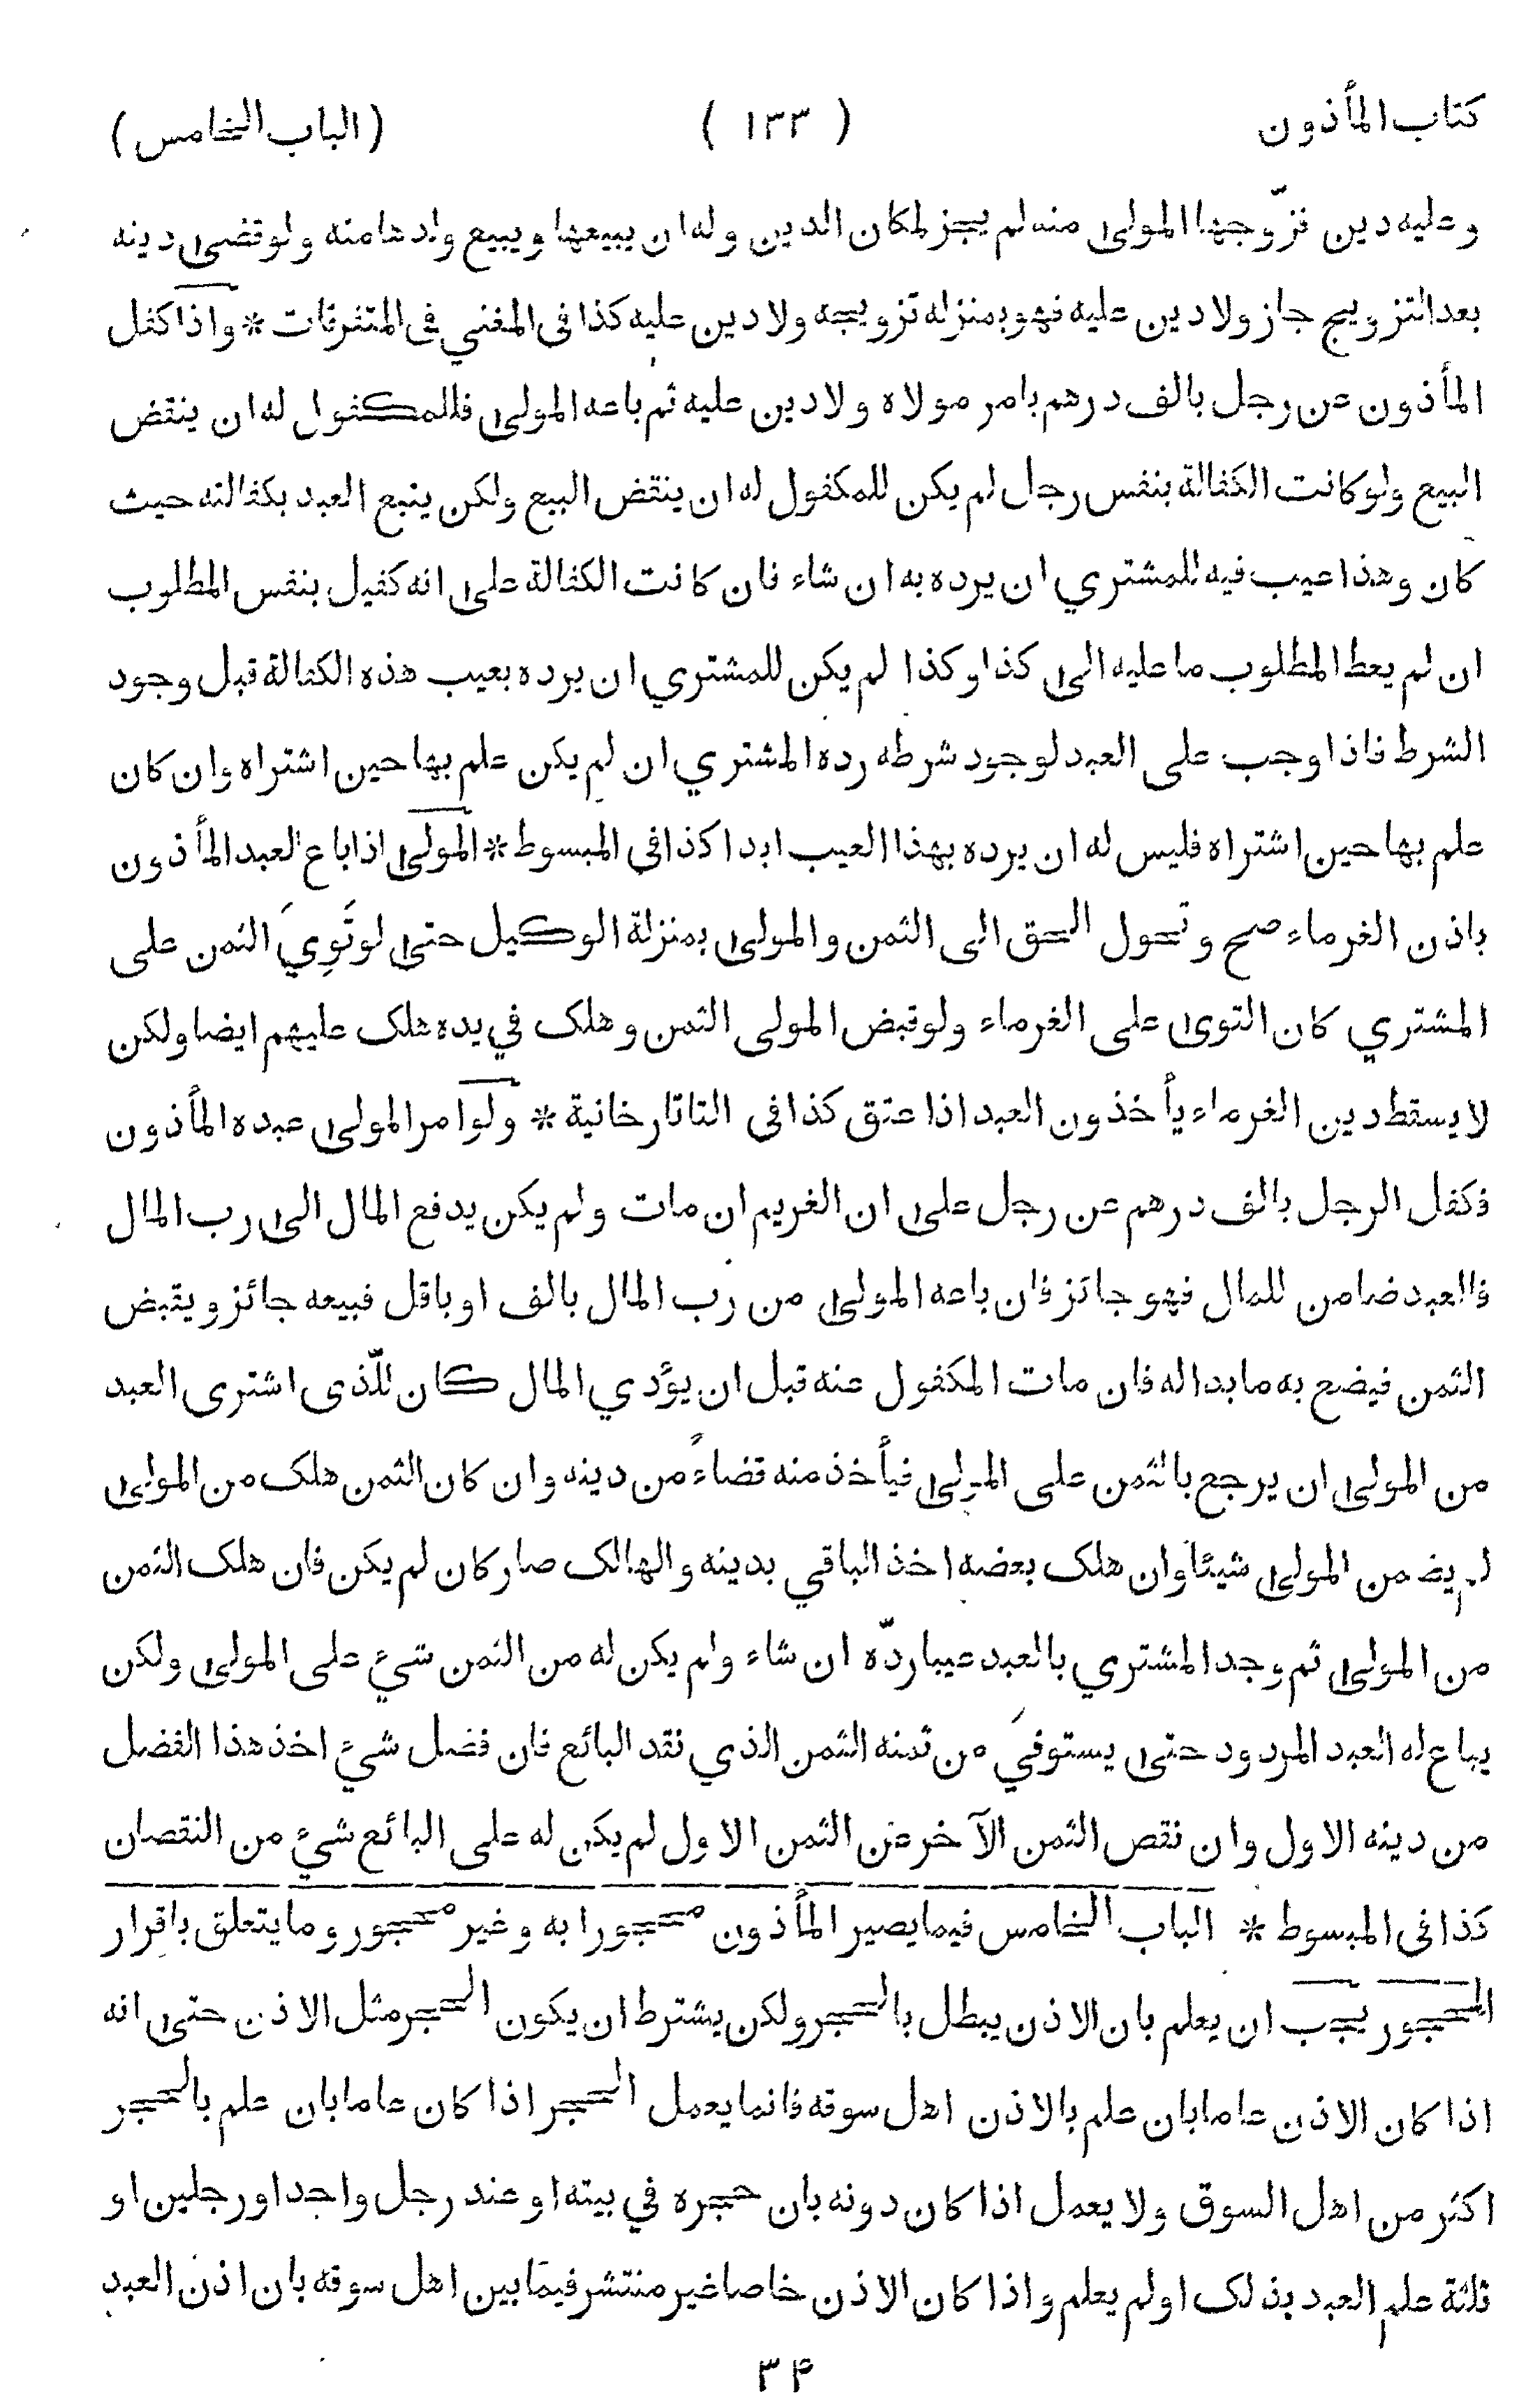 كتاب المأذون ( ١٣٣ ) (الباب الخامس)
وعليه دين فزوّجها المولى منه لم يجز لمكان الدين وله ان يبيعها ويبيع ولدها منه ولو قضى دينه
بعد التزويج جاز ولا دين عليه فهو بمنزلة تزويجه ولا دين عليه كذا في المغني في المتفرقات * واذا كفل
المأذون عن رجل بالف درهم بامر مولاه ولا دين عليه ثم باعه المولى فللمكفول له ان ينقض
البيع ولو كانت الكفالة بنفس رجل لم يكن للمكفول له ان ينقض البيع ولكن يتبع العبد بكفالته حيث
كان وهذا عيب فيه للمشتري ان يرده به ان شاء فان كانت الكفالة على انه كفيل بنفس المطلوب
ان لم يعط المطلوب ما عليه الى كذا وكذا لم يكن للمشتري ان يرده بعيب هذه الكفالة قبل وجود
الشرط فاذا وجب على العبد لوجود شرطه رده المشتري ان لم يكن علم بها حين اشتراه وان كان
علم بها حين اشتراه فليس له ان يرده بهذا العيب ابدا كذا في المبسوط * المولى اذا باع العبد المأذون
باذن الغرماء صح وتحول الحق الى الثمن والمولى بمنزلة الوكيل حتى لو تَوِيَ الثمن على
المشتري كان التوى على الغرماء ولو قبض المولى الثمن وهلك في يده هلك عليهم ايضا ولكن
لا يسقط دين الغرماء يأخذون العبد اذا عتق كذا في التاتارخانية * ولو امر المولى عبده المأذون
فكفل الرجل بالف درهم عن رجل على ان الغريم ان مات ولم يكن يدفع المال الى رب المال
فالعبد ضامن للمال فهو جائز فان باعه المولى من رب المال بالف او باقل فبيعه جائز ويقبض
الثمن فيضع به ما بدا له فان مات المكفول عنه قبل ان يؤدي المال كان للّذى اشترى العبد
من المولى ان يرجع بالثمن على المولى فيأخذ منه قضاءً من دينه وان كان الثمن هلك من المولى
لم يضمن المولى شيئا وان هلك بعضه اخذ الباقي بدينه والهالك صار كان لم يكن فان هلك الثمن
من المولى ثم وجد المشتري بالعبد عيبا ردّه ان شاء ولم يكن له من الثمن شيء على المولى ولكن
يباع له العبد المردود حتى يستوفيَ من ثمنه الثمن الذي نقد البائع فان فضل شيء اخذ هذا الفضل
من دينه الاول وان نقص الثمن الآخر عن الثمن الاول لم يكن له على البائع شيء من النقصان
كذا في المبسوط * الباب الخامس فيما يصير المأذون محجورا به وغير محجور وما يتعلق باقرار
المحجور يجب ان يعلم بان الاذن يبطل بالحجر ولكن يشترط ان يكون الحجر مثل الاذن حتى انه
اذا كان الاذن عاما بان علم بالاذن اهل سوقه فانما يعمل الحجر اذا كان عاما بان علم بالحجر
اكثر من اهل السوق ولا يعمل اذا كان دونه بان حجره في بيته او عند رجل واحد او رجلين او
ثلثة علم العبد بذلك او لم يعلم واذا كان الاذن خاصا غير منتشر فيما بين اهل سوقه بان اذن العبد
٣۴